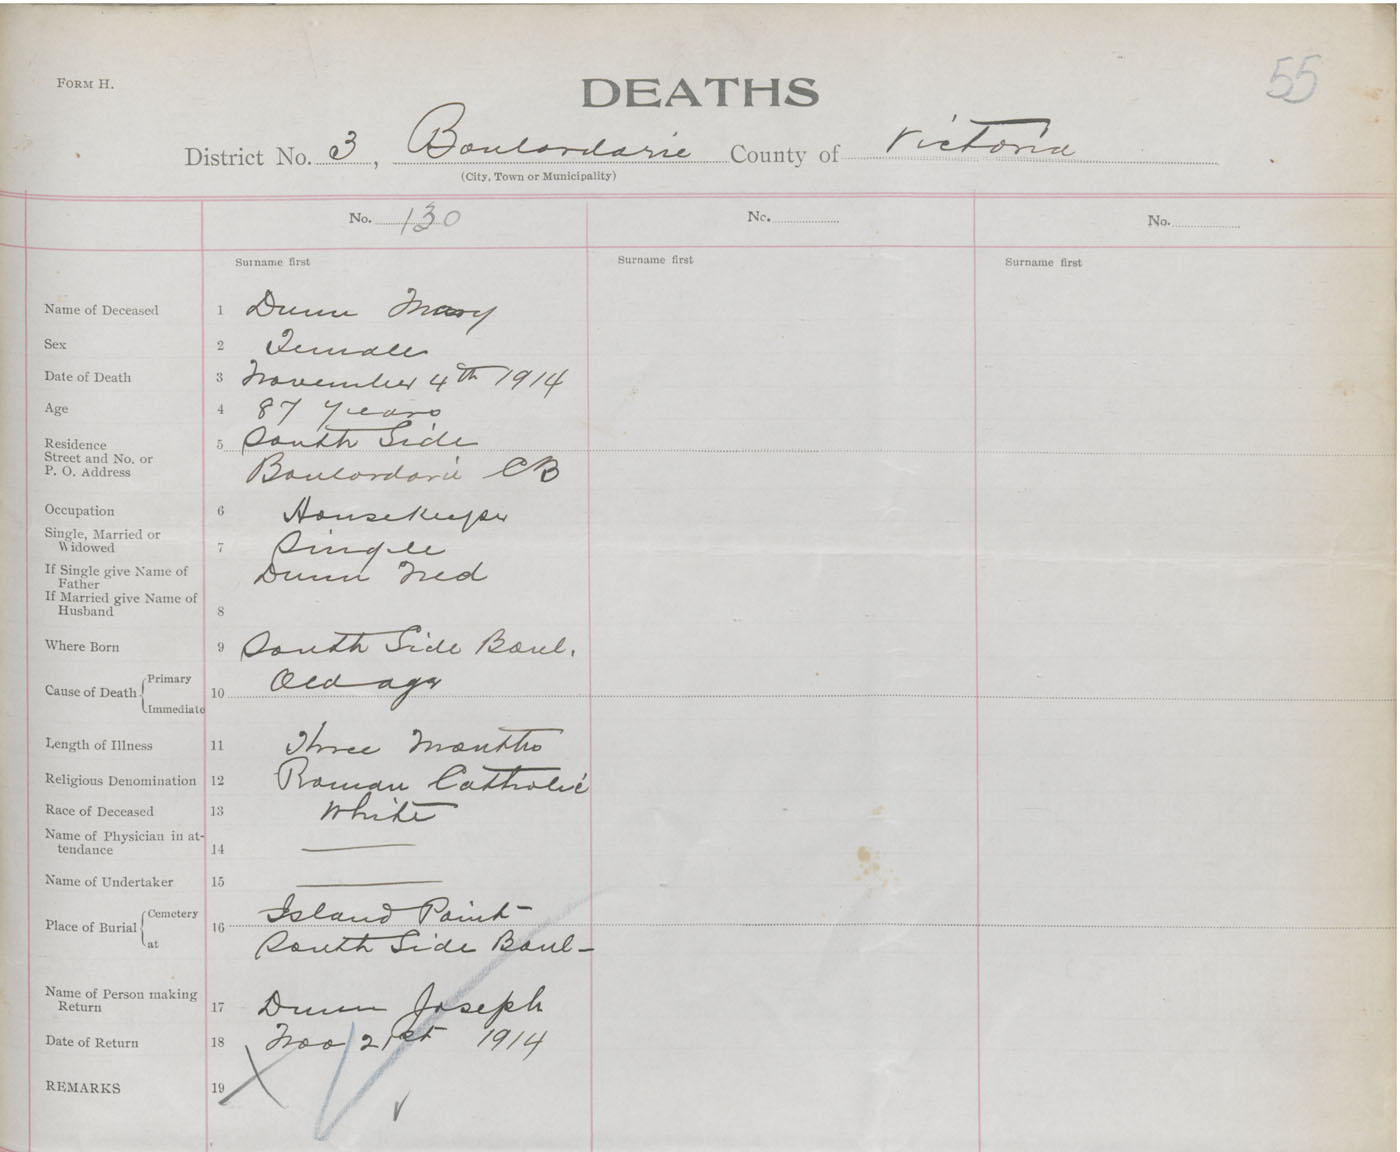 55
FORM H.
DEATHS
District No. 3, Boulardarie County of Victoria
(City, Town or Municipality)
No. 130 No. No.
Surname first Surname first Surname first
Name of Deceased 1 Dunn Mary
Sex 2 Female
Date of Death 3 November 4th 1914
Age 4 87 years
Residence 5 South Side
Street and No. or
P. O. Address Boulardarie CB
Occupation 6 Housekeeper
Single, Married or
Widowed 7 Single
If Single give Name of
Father Dunn Ned
If Married give Name of
Husband 8
Where Born 9 South Side Boul.
Cause of Death Primary 10 Old age
Immediate
Length of Illness 11 Three Months
Religious Denomination 12 Roman Catholic
Race of Deceased 13 White
Name of Physician in at-
tendance 14
Name of Undertaker 15
Place of Burial Cemetery 16 Island Point
at South Side Boul-
Name of Person making
Return 17 Dunn Joseph
Date of Return 18 Nov 21st 1914
REMARKS 19